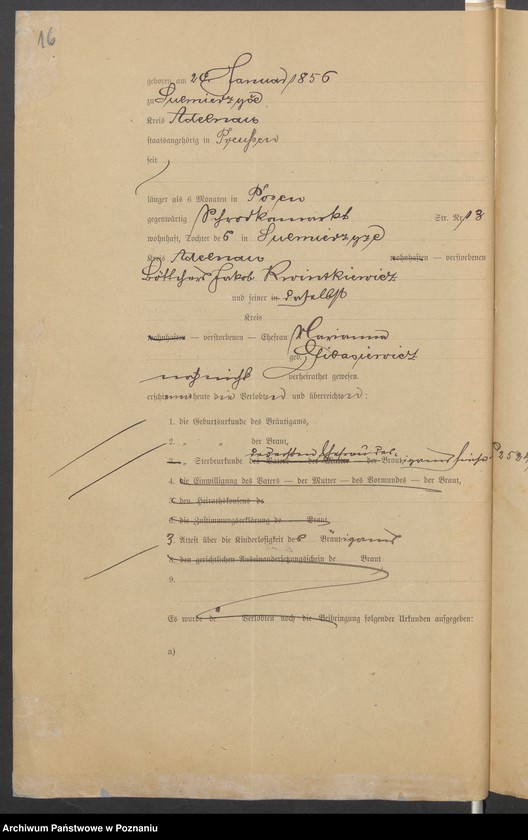 16
geboren am 26. Januar 1856
zu Sulmierzyce
Kreis Adelnau
staatsangehörig in Preußen
seit
länger als 6 Monaten in Posen
gegenwärtig Schrodkamarkt Str. Nr. 13
wohnhaft, Tochter des in Sulmierzyce
Kreis Adelnau wohnhaften — verstorbenen
Böttchers Jakob Kwintkiewicz
und seiner in daselbst
Kreis
wohnhaften — verstorbenen — Ehefrau Marianna
geb.
noch nicht verheirathet gewesen.
erschienen heute die Verlobten und überreichten:
1. die Geburtsurkunde des Bräutigams,
2. " " der Braut,
3. " Sterbeurkunde des Vaters — der Mutter — der Braut, der ersten Ehefrau des Bräutigams
4. die Einwilligung des Vaters — der Mutter — des Vormundes — der Braut,
5. den Heirathskonsens des
6. die Zustimmungserklärung de Braut
3. Attest über die Kinderlosigkeit des Bräutigams
8. den gerichtlichen Auseinandersetzungsschein de Braut
9.
Es wurde de Verlobten noch die Beibringung folgender Urkunden aufgegeben:
a)
Archiwum Państwowe w Poznaniu